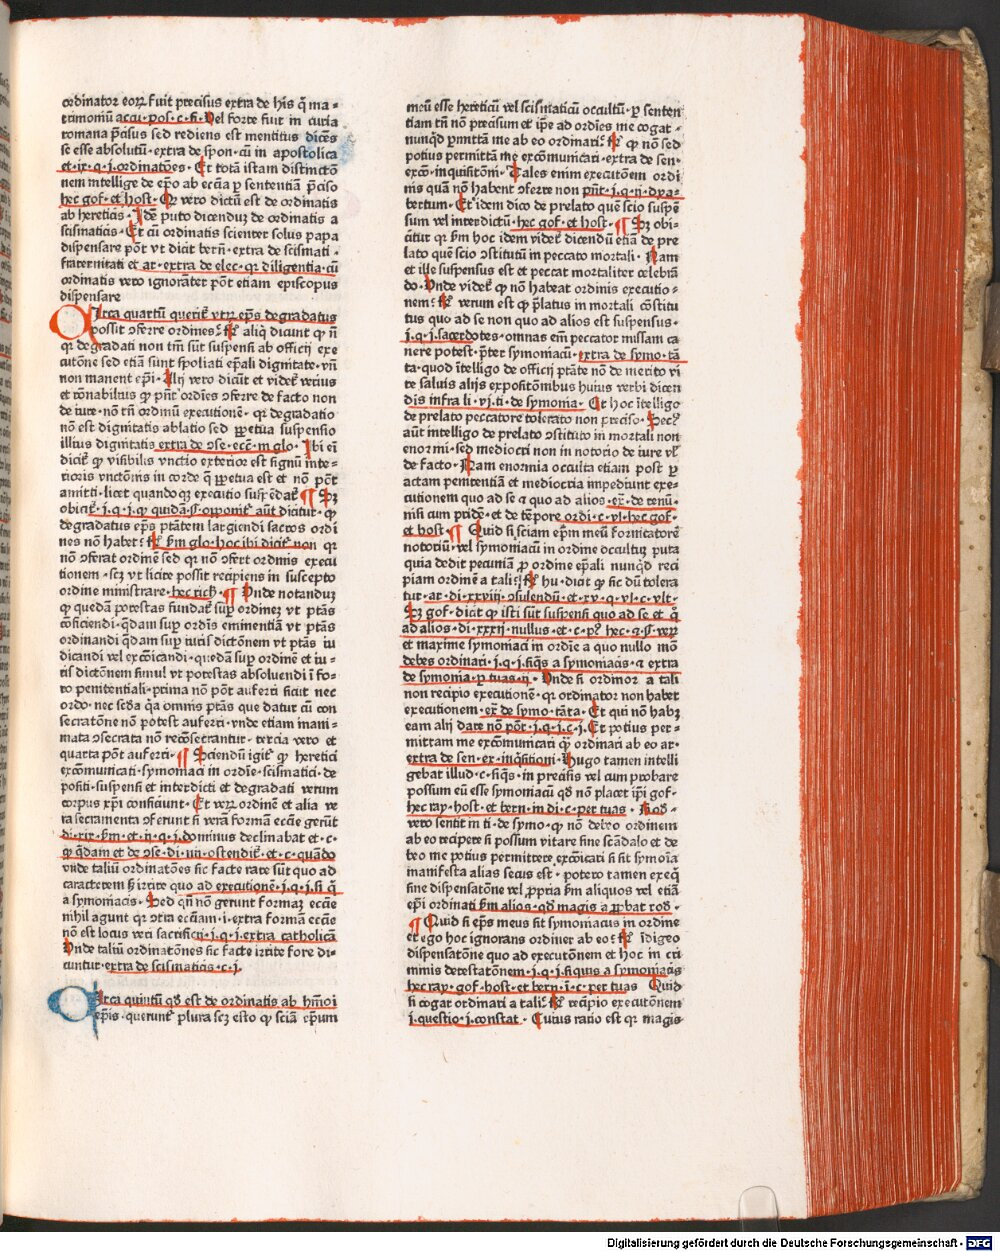 ordinator eorꝝ fuit precisus extra de his q̄ ma⸗
trimoniū accu·pos·c·fi· Vel forte fuit in curia
romana p̄cisus sed rediens est mentitus dicēs
se esse absolutū·extra de spon·cū in apostolica
et·ix·q·j·ordinatōes· Et totā istam distinctō
nem intellige de ep̄o ab ecc̄ia ꝑ sententiā p̄ciso
hec gof·et host· Qꝛ vero dictū est de ordinatis
ab hereticis· Idē puto dicenduꝫ de ordinatis a
scismaticis· Et cū ordinatis scienter solus papa
dispensare pōt vt dicit bern̄·extra de scismati·
fraternitati et at·extra de elec·qꝛ diligentia·cū
ordinatis vero ignorāter pōt etiam episcopus
dispensare
Circa quartū querit᷑ vtꝝ ep̄s degradatus
possit ꝯferre ordines· aliq̄ dicunt ꝙ n̄
qꝛ degradati non tm̄ sūt suspensi ab officij exe
cutōne sed etiā sunt spoliati ep̄ali dignitate·vn̄
non manent ep̄i· Alij vero dicūt et videt᷑ verius
et rōnabilius ꝙ pn̄t ordies ꝯferre de facto non
de iure·nō tn̄ ordinū executionē·qꝛ degradatio
nō est dignitatis ablatio sed ꝑpetua suspensio
illius dignitatis extra de ꝯse·ecc̄·in glo· Ibi ei̅
dicit᷑ ꝙ visibilis vnctio exterior est signū inte⸗
rioris vnctōnis in corde q̄ ꝑpetua est et nō pōt
amitti·licet quandoqꝫ executio suspēdat᷑ ¶ Sꝫ
obicit᷑·j·q·j·ꝙ quidā·§·opponit᷑ aūt dicitur·ꝙ
degradatus ep̄s ptātem largiendi sacros ordi
nes nō habet· ẜm glo·hoc ibi dicit᷑ non qꝛ
nō ꝯferat ordinē sed qꝛ nō ꝯfert ordinis execu
tionem·scꝫ vt licite possit recipiens in suscepto
ordine ministrare·hec rich̄· ¶ Vnde notanduꝫ
ꝙ quedā potestas fundat᷑ suꝑ ordineꝫ vt ptās
cōficiendi·q̄dam suꝑ ordīs eminentiā vt ptās
ordinandi q̄dam suꝑ iurisdictōnem vt ptās iu
dicandi vel excōicandi·quedā suꝑ ordinē et iu⸗
risdictōnem simul vt potestas absoluendi ī fo⸗
ro penitentiali·prima nō pōt auferri sicut nec
ordo·nec scd̄a q̄a omnis ptās que datur cū con
secratōne nō potest auferri·vnde etiam inani⸗
mata ꝯsecrata nō recōsecrantur·tercia vero et
quarta pōt auferri· ¶ Sciendū igit᷑ ꝙ heretici
excōmunicati·symoniaci in ordīe·scismatici·de
positi·suspensi et interdicti et degradati verum
corpus xp̄i conficiunt· Et verꝝ ordinē et alia ve
ra sacramenta ꝯferunt si verā formā ecc̄ie gerūt
di·xix·ẜm·et·ij·q·j·dominus declinabat et·c·
ꝙ q̄dam et de ꝯse·di·iiij·ostendit᷑·et·c·quādo
vnde taliū ordinatōes sic facte rate sūt quo ad
caracterem ẜꝫ irrite quo ad executionē·j·q·j·si q̄
a symoniacis· Sed qn̄ nō gerunt formaꝫ ecc̄ie
nihil agunt qꝛ ꝯtra ecc̄iam·i·extra formā ecc̄ie
nō est locus veri sacrificij·j·q·j·extra catholicā
Vnde taliū ordinatōnes sic facte irrite fore di⸗
cuntur·extra de scismaticis·c·j·
Circa quintū qd̄ est de ordinatis ab hm̄oi
ep̄is·querunt᷑ plura scꝫ esto ꝙ sciā ep̄um
meū esse hereticū vel scismaticū occultū·ꝑ senten
tiam tn̄ nō precisum et ip̄e ad ordīes me cogat·
nunqd̄ ꝑmittā me ab eo ordinari· ꝙ nō sed
potius permittā me excōmunicari·extra de sen·
excō·inquisitōni· Tales enim executōem ordi
nis quā nō habent ꝯferre non pn̄t·j·q·ij·dya⸗
tertum· Et idem dico de prelato quē scio suspē
sum vel interdictū·hec gof·et host· ¶ Sꝫ obi⸗
citur ꝙ ẜm hoc idem videt᷑ dicendū etiā de pre
lato quē scio ꝯstitutū in peccato mortali· Nam
et ille suspensus est et peccat mortaliter celebrā
do· Vnde videt᷑ ꝙ nō habeat ordinis executio⸗
nem· verum est ꝙ p̄latus in mortali cōstitu
tus quo ad se non quo ad alios est suspensus·
j·q·j·sacerdotes·omnas em̄ peccator missam ca
nere potest·p̄ter symoniacū·extra de symo·tā
ta·quod ītelligo de officij ptāte nō de merito vi
te saluis alijs expositōnibus huius verbi dicen
dis infra li·vj·ti·de symonia· Et hoc ītelligo
de prelato peccatore tolerato non preciso· Secꝰ
aūt intelligo de prelato ꝯstituto in mortali non
enormi·sed mediocri non in notorio de iure vl̄
de facto· Nam enormia occulta etiam post ꝑ
actam penitentiā et mediocria impediunt exe⸗
cutionem quo ad se ⁊ quo ad alios·ex̄·de tenu·
nisi cum pridē·et de tēpore ordi·c·vl·hec gof·
et host ¶ Quid si sciam ep̄m meū fornicatorē
notoriū·vel symoniacū in ordine occultuꝫ puta
quia dedit pecuniā ꝑ ordine ep̄ali nunqd̄ reci
piam ordinē a tali· hu·dicit ꝙ sic dū tolera
tur·at·di·xxviij·ꝯsulendū·et·xv·q·vl·c·vlt·
Sꝫ gof·dicit ꝙ isti sūt suspensi quo ad se et q̄
ad alios·di·xxxij·nullus·et·c·pꝰ hec·⁊·§·veꝝ
et maxime symoniaci in ordīe a quo nullo mō
debes ordinari·j·q·j·siqs a symoniacis·⁊ extra
de symonia·ꝑ tuas·ij· Vnde si ordinor a tali
non recipio executionē·qꝛ ordinator non habet
executionem·ex̄·de symo·tāta· Et qui nō habꝫ
eam alij dare nō pōt·j·q·j·c·j· Et potius per⸗
mittam me excōmunicari q̄ꝫ ordinari ab eo at·
extra de sen·ex·inq̄sitioni· Hugo tamen intelli
gebat illud·c·siqs·in precisis vel cum probare
possum eū esse symoniacū qd̄ nō placet ip̄i gof·
hec ray·host·et bern·in di·c·per tuas· Rod̄·
vero sentit in ti·de symo·ꝙ nō debeo ordinem
ab eo recipere si possum vitare sine scādalo et de
beo me potius permittere excōicari si sit symoīa
manifesta alias secus est·potero tamen exeq̄
sine dispensatōne vel ꝓpria ẜm aliquos vel etiā
ep̄i ordinati ẜm alios·qd̄ magis aꝓbat rod̄·
¶ Quid si ep̄s meus sit symoniacus in ordine
et ego hoc ignorans ordiner ab eo· īdigeo
dispensatōne quo ad executōnem et hoc in cri
minis detestatōnem·j·q·j·siquis a symoniacis
hec ray·gof·host·et bern·ī·c·per tuas Quid
si cogat ordinari a tali· recipio executōnem
j·questio·j·constat· Cuius ratio est qꝛ magis
Digitalisierung gefördert durch die Deutsche Forschungsgemeinschaft - DFG